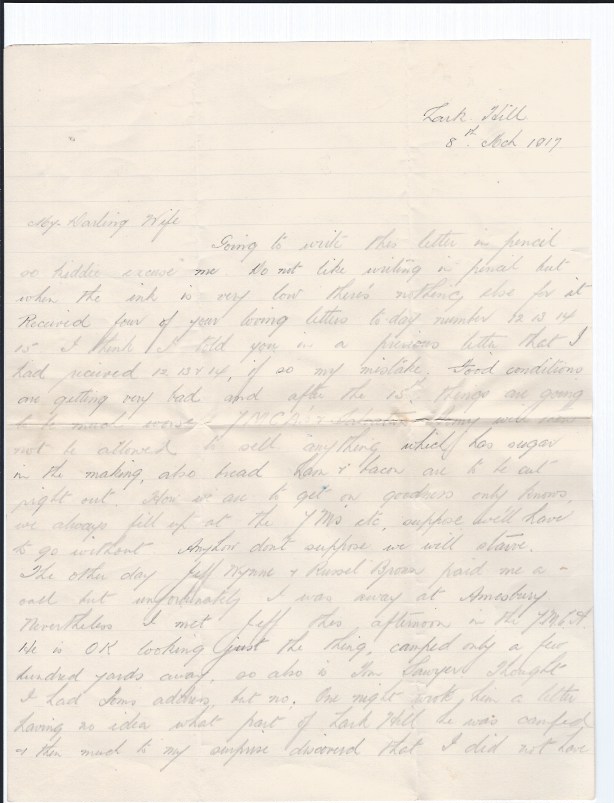 Lark Hill
8th Mch 1917
My Darling Wife
Going to write this letter in pencil
so kiddie excuse me. Do not like writing in pencil but
when the ink is very low there's nothing else for it
Received four of your loving letters to-day number 12 13 14
15 I think I told you in a previous letter that I
had received 12, 13 & 14, if so my mistake. Food conditions
are getting very bad and after the 15th things are going
to be much worse, YMCA's &
not be allowed to sell anything which has sugar
in the making, also bread ham & bacon are to be cut
right out. How we are to get on goodness only knows,
we always fill up at the YM's etc, suppose we'll have
to go without Anyhow don't suppose we will starve.
The other day Jeff Wynne & Russel Brown paid me a
call but unfortunately I was away at Amesbury
Nevertheless I met Jeff this afternoon in the YMCA
He is OK looking just the thing, camped only a few
hundred yards away, so also is Jim Sawyer Thought
I had Jims address, but no. One night wrote him a letter
having no idea what part of Lark Hill he was camped
& then much to my surprise discovered that I did not have